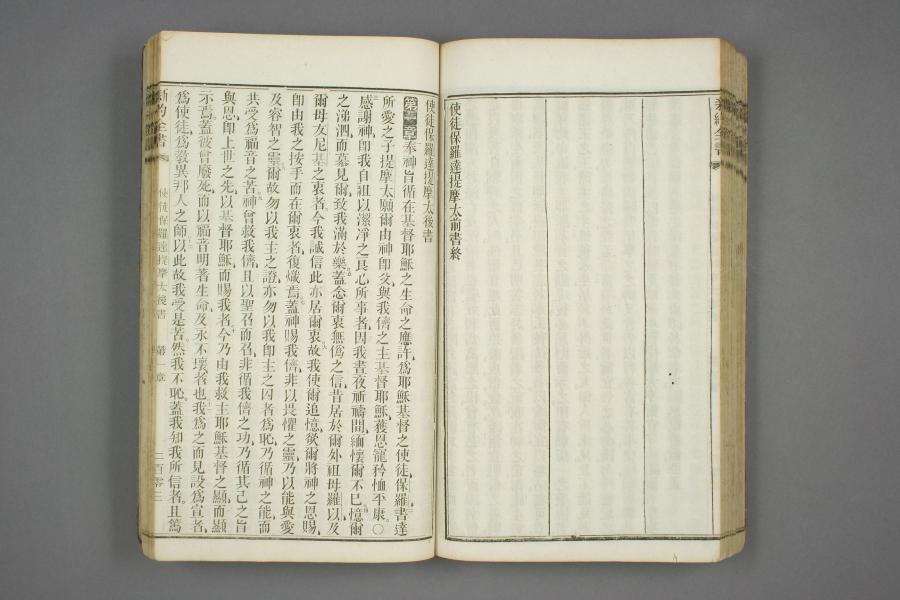 使徒保羅達提摩太前書終
使徒保羅達提摩太後書
第一章奉神旨循在基督耶穌之生命之應許爲耶穌基督之使徒保羅書達
所愛之子提摩太願爾由神卽父與我儕之主基督耶穌獲恩寵矜恤平康〇
感謝神卽我自祖以潔凈之良心所事者因我晝夜祈禱間緬懷爾不已憶爾
之涕泗而慕見爾致我滿於樂蓋念爾衷無僞之信昔居於爾外祖母羅以及
爾母友尼基之衷者今我誠信此亦居爾衷故我使爾追憶燚爾將神之恩賜
卽由我之按手而在爾衷者復熾焉蓋神賜我儕非以畏懼之靈乃以能與愛
及睿智之靈爾故勿以我主之證亦勿以我卽主之囚者爲恥乃循神之能而
共受爲福音之苦神曾救我儕且以聖召而召非循我儕之功乃循其己之旨
與恩卽上世之先以基督耶穌而賜我者今乃由我救主耶穌基督之顯而顯
示焉蓋彼曾廢死而以福音明著生命及永不壞者也我爲之而見設爲宣者
爲使徒爲敎異邦人之師以此故我受是苦然我不恥蓋我知我所信者且篤
新約全書
使徒保羅達提摩太後書
第一章
二百零三